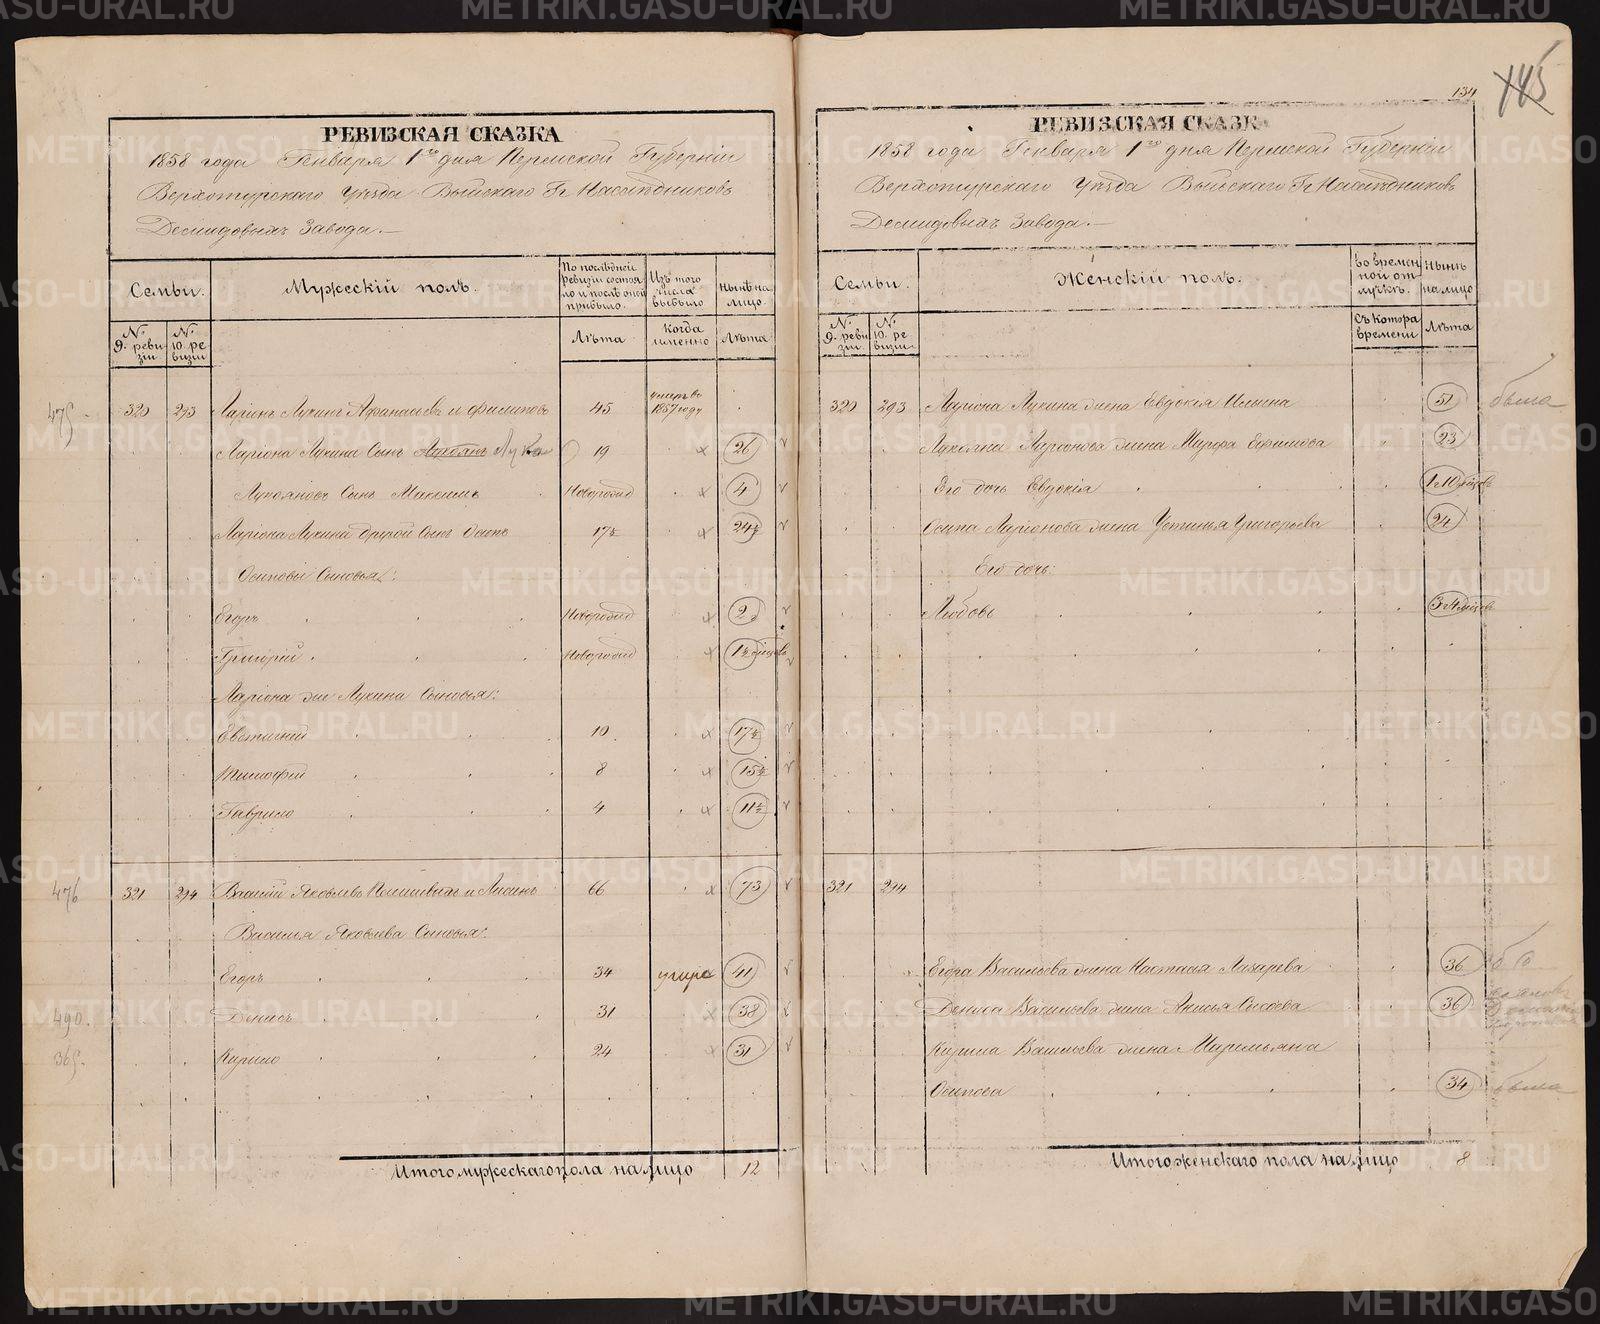 145
134
РЕВИЗСКАЯ СКАЗКА
1858 года Генваря 1го дня Пермской Губерніи
Верхотурскаго Уѣзда Выйскаго Гг Наслѣдниковъ
Демидовыхъ Завода.—
Семьи.
Мужескій полъ.
По послѣдней ревизіи состояло и послѣ оной прибыло.
Изъ того числа выбыло
Нынѣ на лицо.
№ 9. ревизіи
№ 10. ревизіи
Лѣта
Когда именно
Лѣта
475.
320 293 Ларіонъ Лукинъ Афанасьевъ и Филиповъ 45 умеръ въ 1857 году
Ларіона Лукина Сынъ Лукоянъ Лука 19 26
Лукояновъ Сынъ Максимъ Новорожд 4
Ларіона Лукина другой Сынъ Осипъ 17½ 24½
Осиповы Сыновья:
Егоръ Новорожд 2
Григорій Новорожд 1½ мѣсцовъ
Ларіона же Лукина Сыновья:
Евстигней 10 17½
Тимофей 8 15½
Гаврило 4 11½
476
321 294 Василій Яковлевъ и Лисинъ 66 73
Василья Яковлева Сыновья:
Егоръ 34 умре 41
490. Денисъ 31 38
365. Кирило 24 31
Итого мужескаго пола на лицо 12
РЕВИЗСКАЯ СКАЗК
1858 года Генваря 1го дня Пермской Губерніи
Верхотурскаго Уѣзда Выйскаго Гг Наслѣдниковъ
Демидовыхъ Завода.—
Семьи.
Женскій полъ.
Во временной отлучкѣ.
Нынѣ на лицо
№ 9. ревизіи
№ 10. ревизіи
Съ котора времени
Лѣта
320 293 Ларіона Лукина жена Евдокія Ильина 51
Лукояна Ларіонова жена Марфа Ефимова 23
Его дочь Евдокія 1 и 10 мѣсцовъ
Осипа Ларіонова жена Устинья Григорьева 24
Его дочь:
Любовь 3 и 4 мѣсцовъ
321 294
Егора Васильева жена Настасья Лазарева 36
Дениса Васильева жена Акилина Сысоева 36
Кирила Васильева жена Маремьяна
Осипова 34
Итого женскаго пола на лицо 8
METRIKI.GASO-URAL.RU